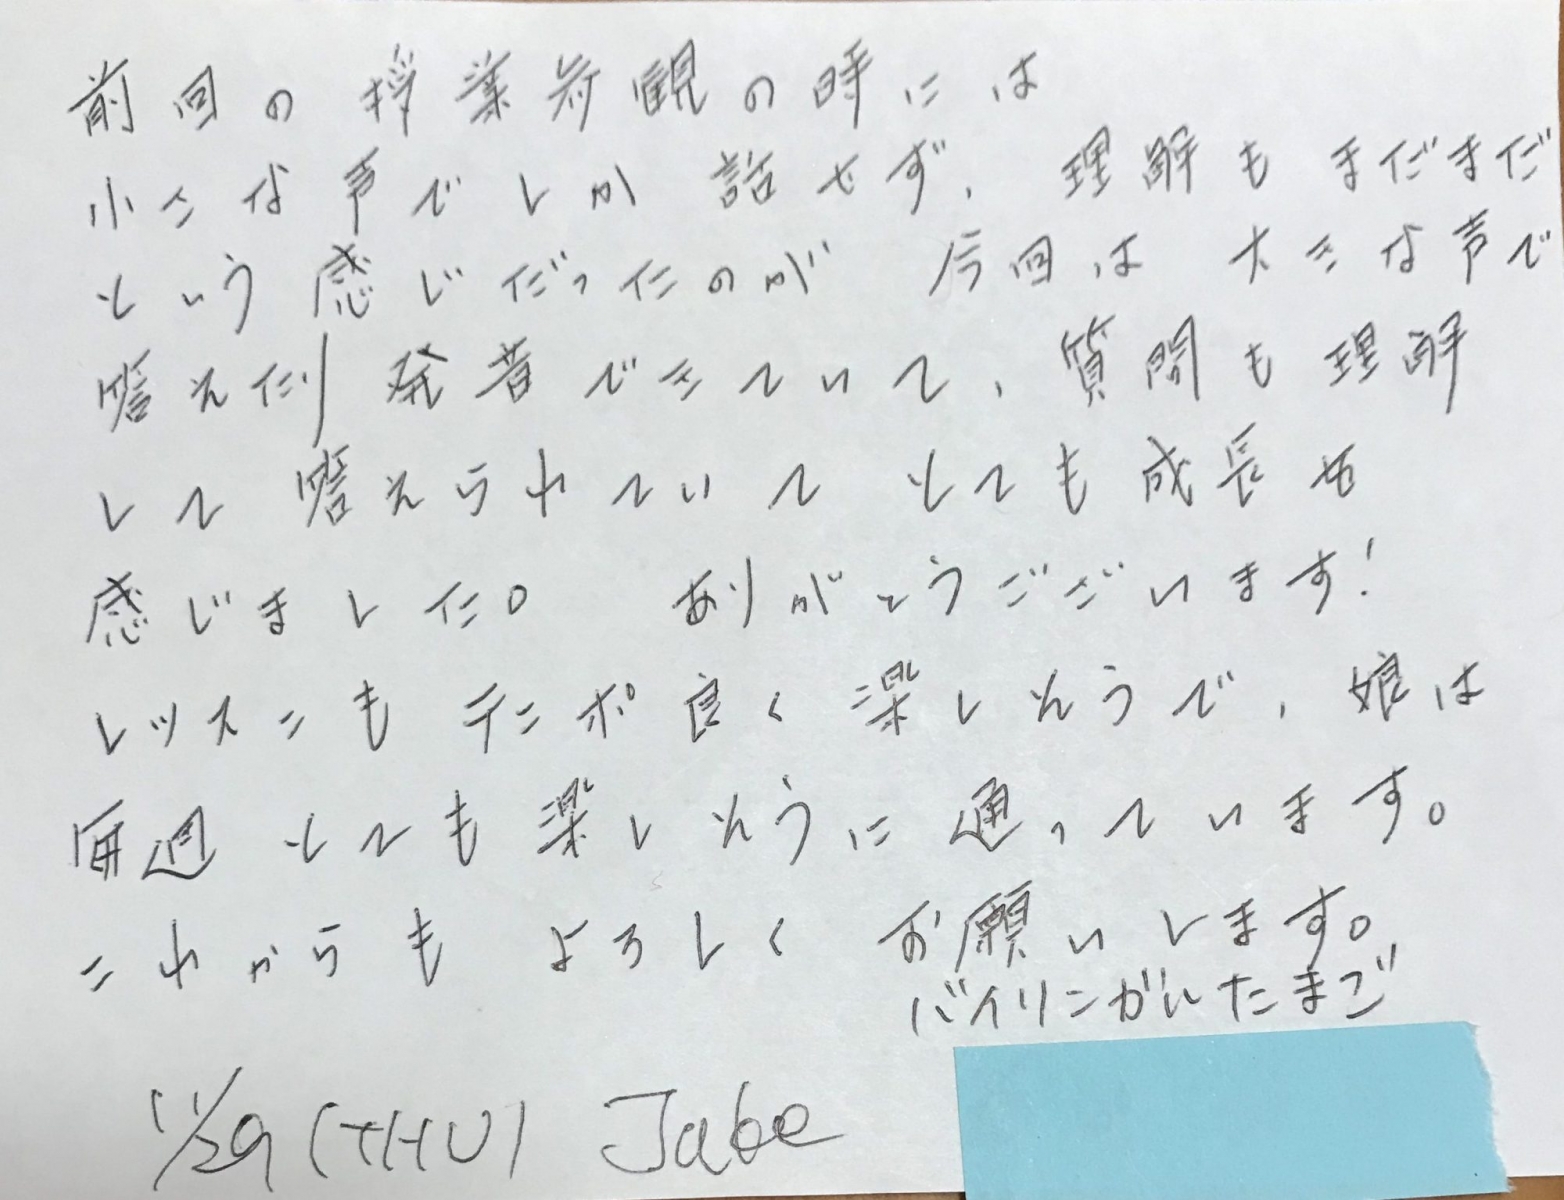 前回の授業参観の時には
小さな声でしか話せず、理解もまだまだ
という感じだったのが 今回は 大きな声で
答えたり発音できていて、質問も理解
して 答えられていて とても成長を
感じました。 ありがとうございます!
レッスンも テンポ良く楽しそうで、娘は
毎週 とても楽しそうに通っています。
これからも よろしく お願いします。
バイリンガルたまご
11/29 (THU) Jabe